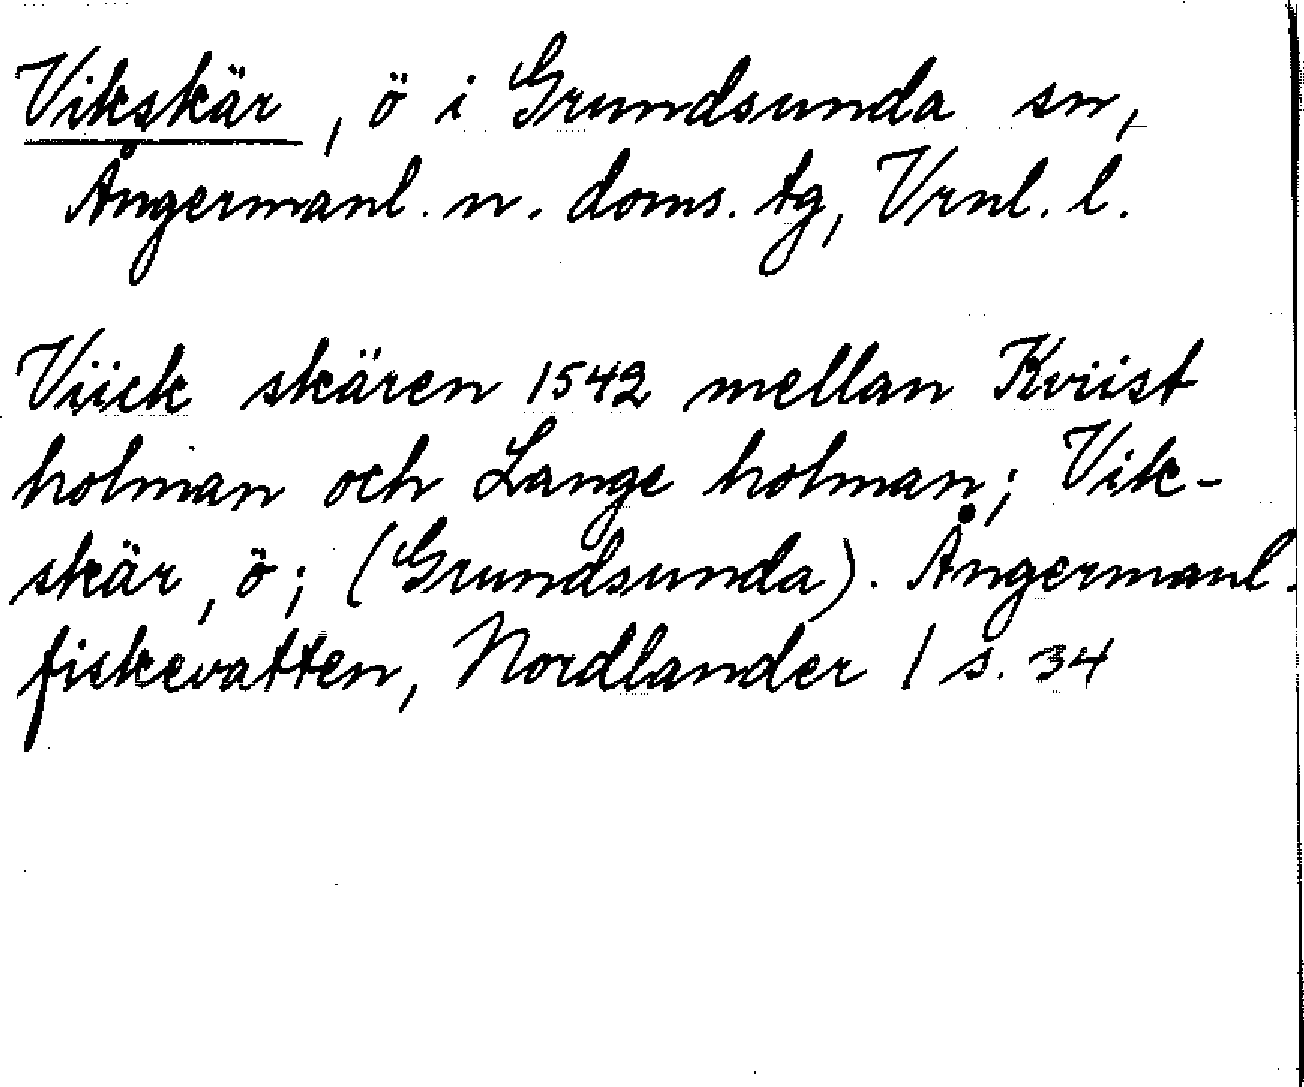 Vikskär, ö i Grundsunda sn,
Ångermanl. n. doms. tg, Vrnl. l.
Viick skären 1542 mellan Kviist
holman och Lange holman; Vik-
skär, ö; (Grundsunda). Ångermanl.
fiskevatten, Nordlander 1 s. 34